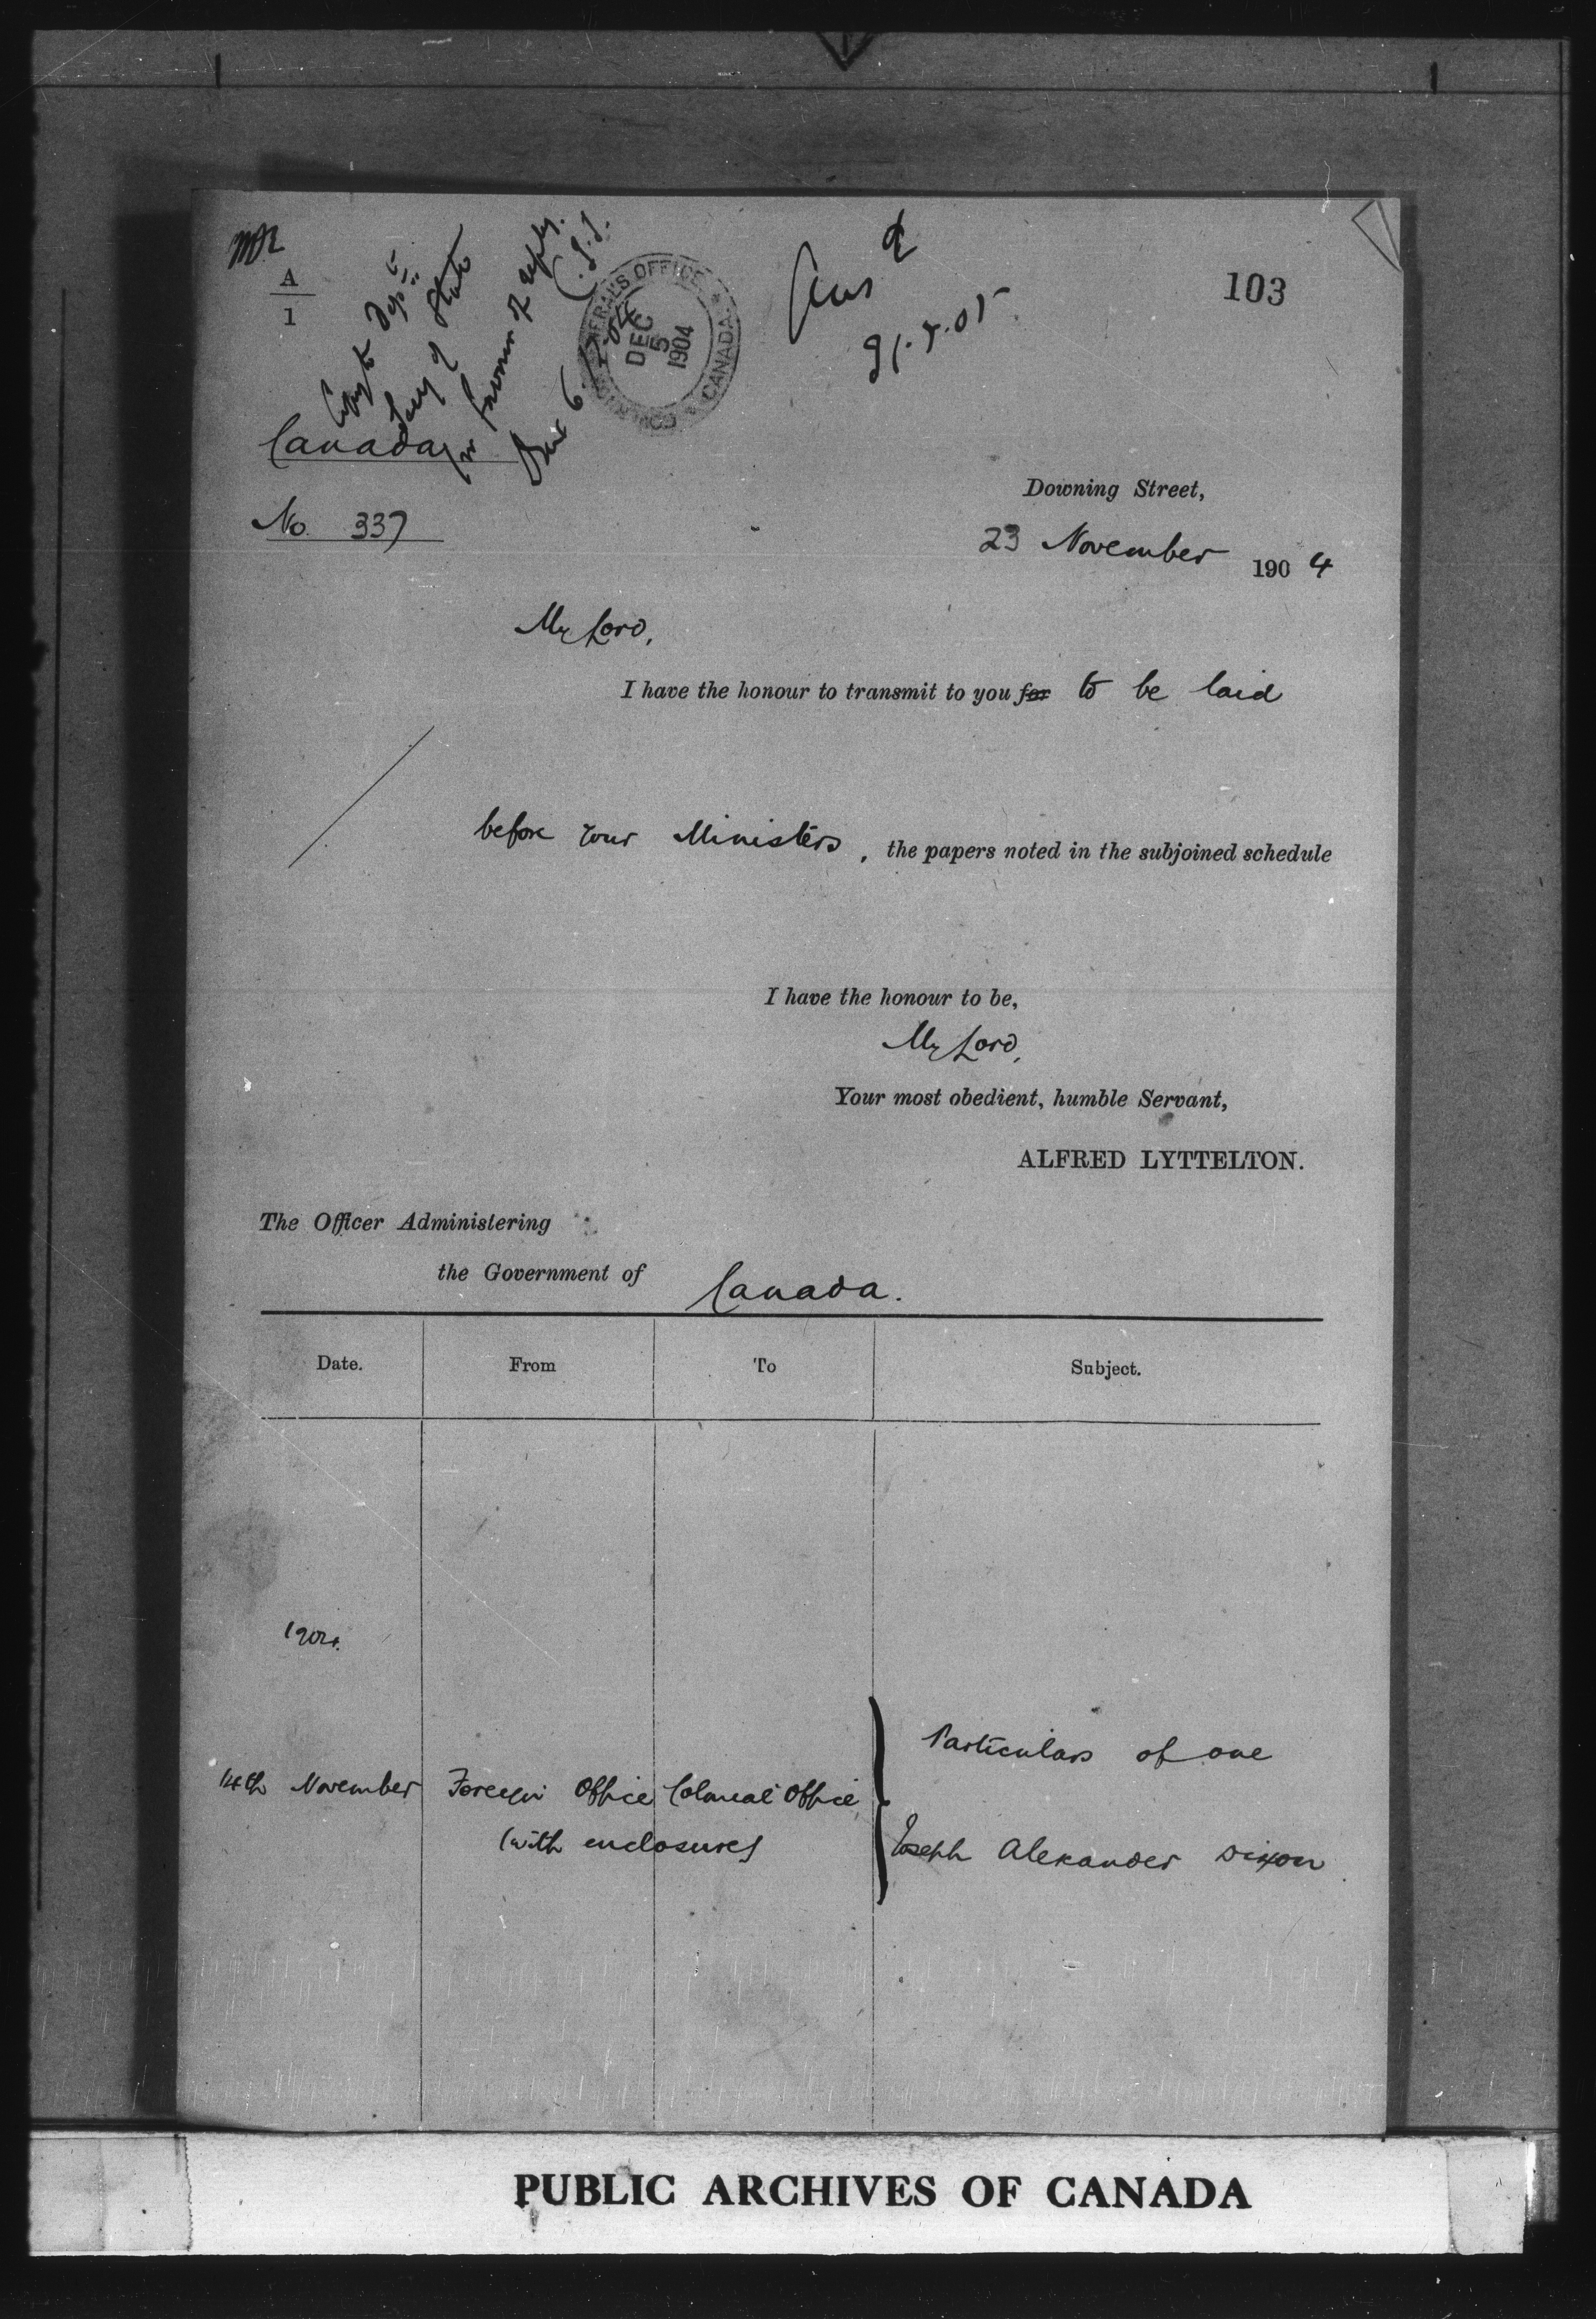 A
1
Copy to Dept
Secy of State
for favour of reply.
Dec 6
GOVERNOR GENERAL'S OFFICE
DEC
5
1904
CANADA
103
Canada
No. 337
Downing Street,
23 November 1904
My Lord,
I have the honour to transmit to you for to be laid
before your Ministers, the papers noted in the subjoined schedule
I have the honour to be,
My Lord,
Your most obedient, humble Servant,
ALFRED LYTTELTON.
The Officer Administering
the Government of Canada.
Date. From To Subject.
1904.
Particulars of one
14th November Foreign Office Colonial Office
(with enclosures)
Joseph Alexander Dixon
PUBLIC ARCHIVES OF CANADA